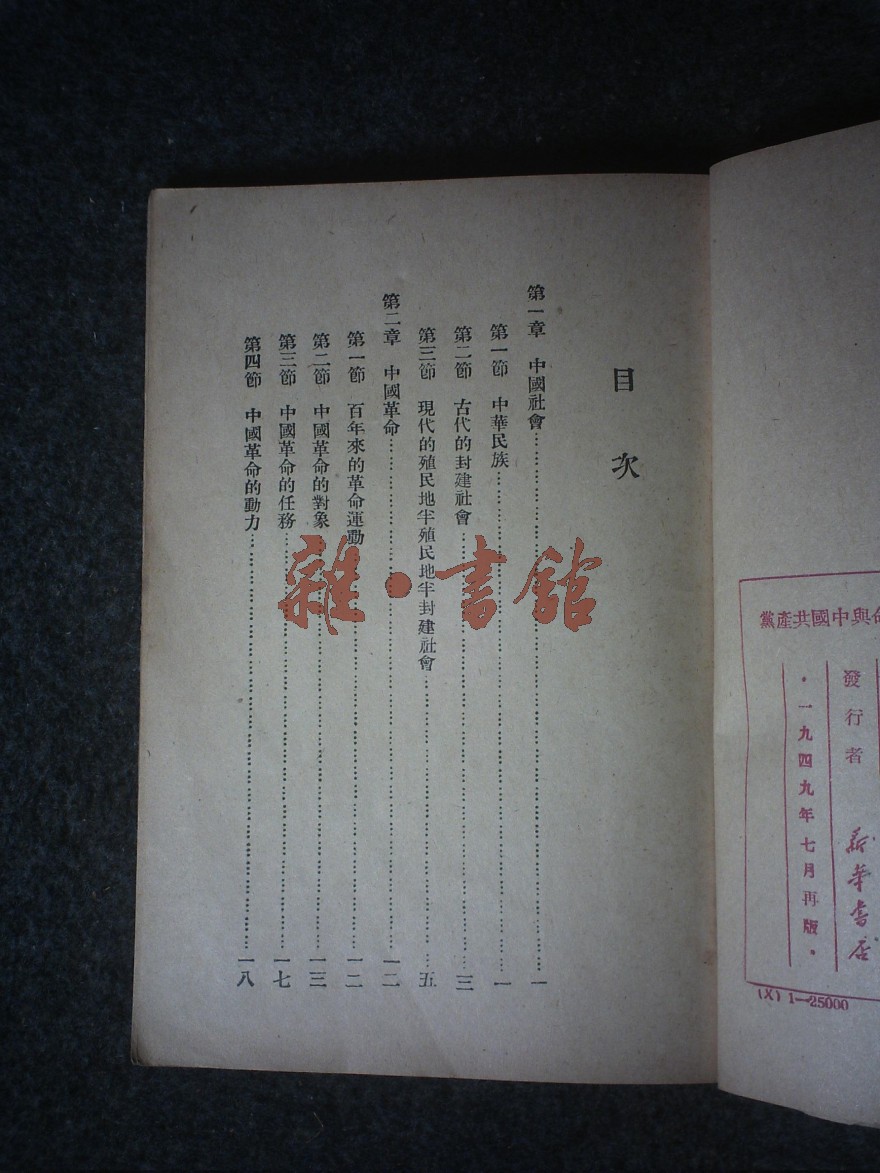 目次
第一章 中國社會……一
第一節 中華民族……一
第二節 古代的封建社會……三
第三節 現代的殖民地半殖民地半封建社會……五
第二章 中國革命……一二
第一節 百年來的革命運動……一二
第二節 中國革命的對象……一三
第三節 中國革命的任務……一七
第四節 中國革命的動力……一八
雜·書館
與中國共產黨
發行者 新華書店
·一九四九年七月再版·
(X) 1—25000